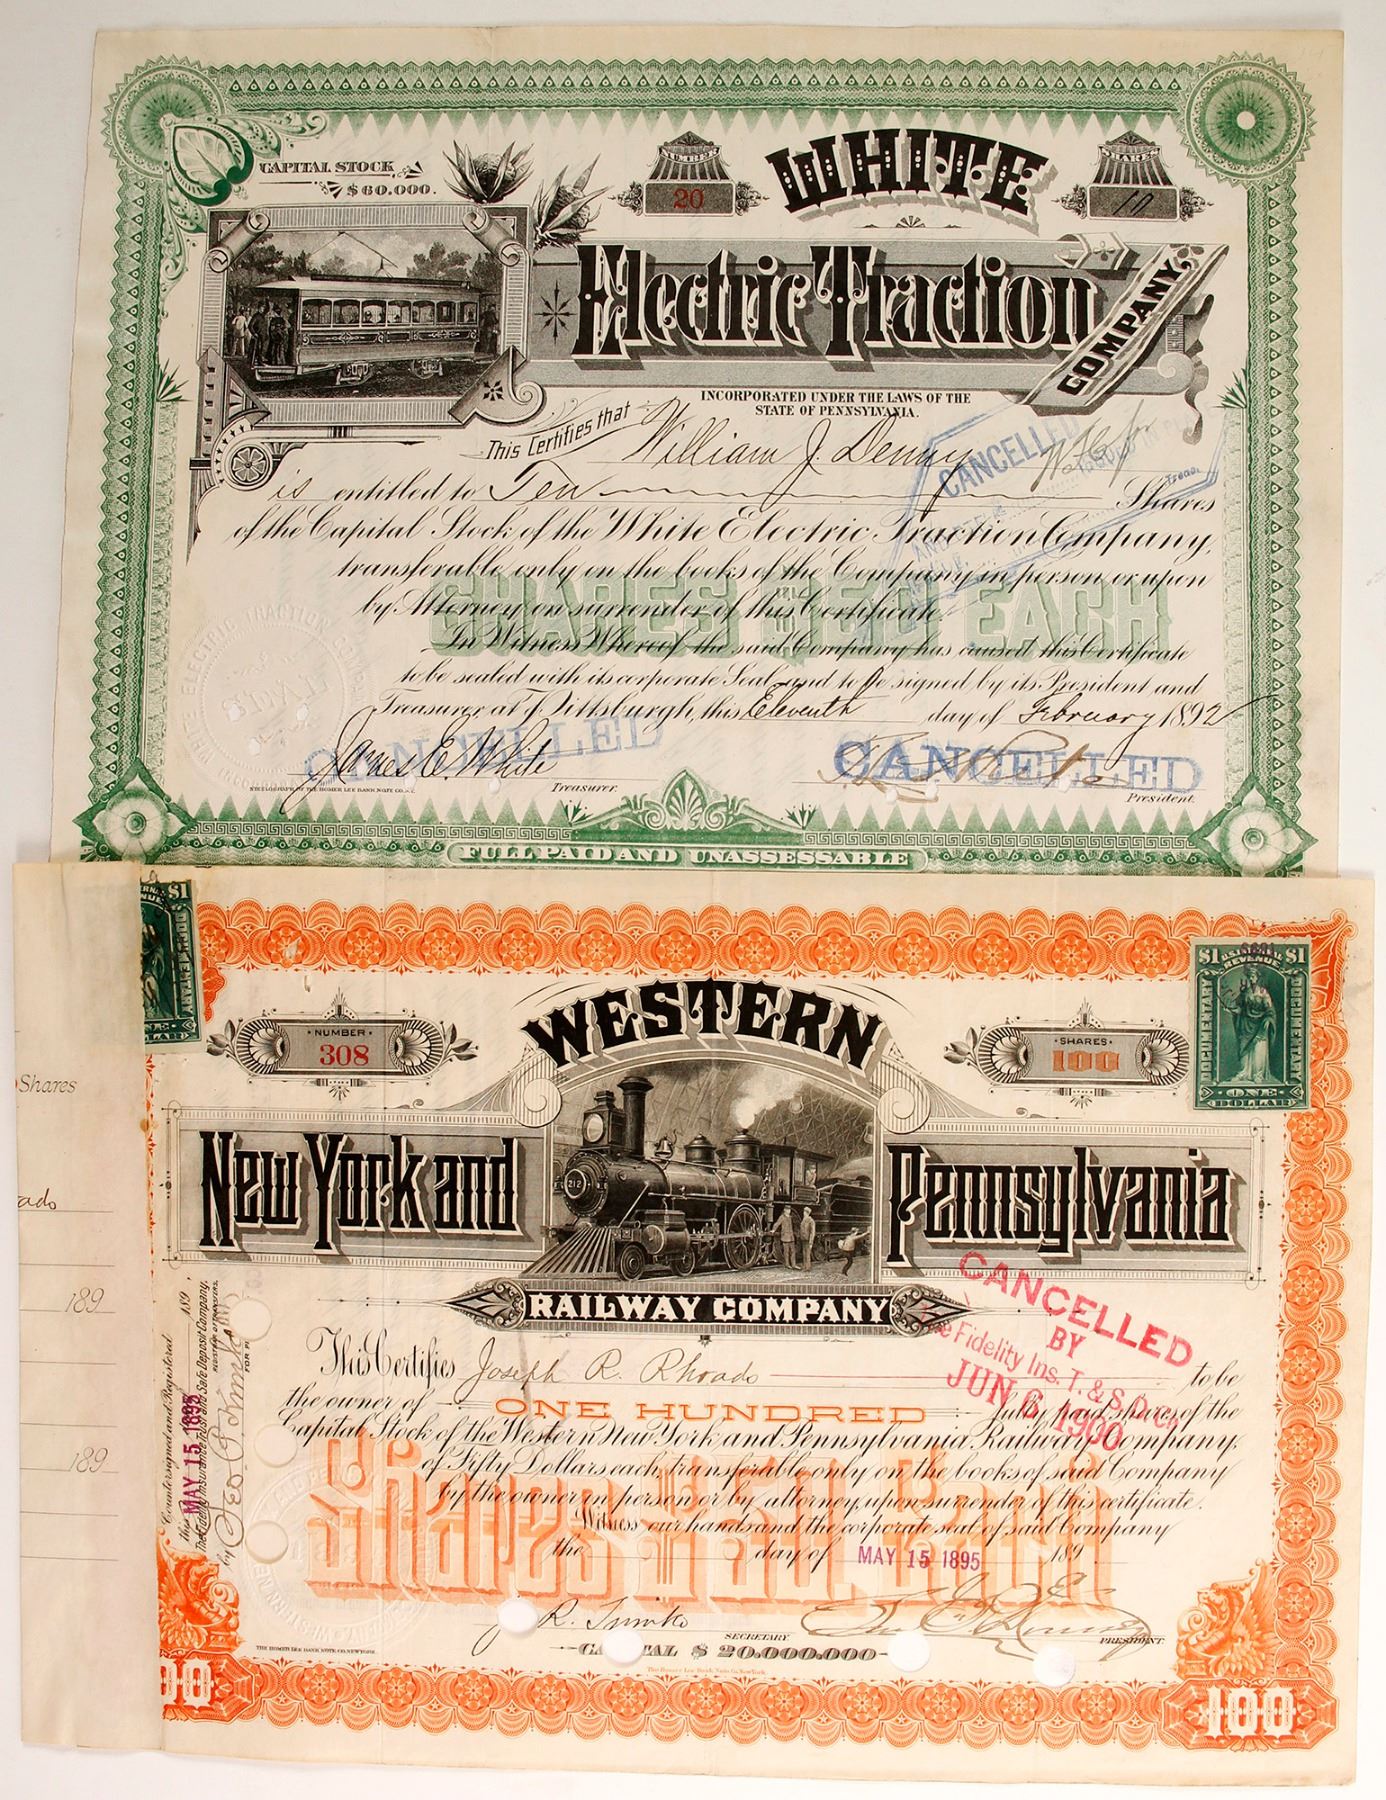 CAPITAL STOCK
$60.000.
NUMBER
20
WHITE
SHARES
10
Electric Traction
COMPANY
INCORPORATED UNDER THE LAWS OF THE
STATE OF PENNSYLVANIA.
This Certifies that William J. Denny
CANCELLED
Treas.
is entitled to Ten Shares
of the Capital Stock of the White Electric Traction Company,
transferable only on the books of the Company in person or upon
by Attorney on surrender of this Certificate.
SHARES $50 EACH
In Witness Whereof the said Company has caused this Certificate
to be sealed with its corporate Seal and to be signed by its President and
Treasurer at Pittsburgh, this Eleventh day of February 1892
WHITE ELECTRIC TRACTION COMPANY
CANCELLED
James C. White
CANCELLED
Treasurer.
President.
FULL PAID AND UNASSESSABLE
$1
DOCUMENTARY
$1 $1
REVENUE
DOCUMENTARY
DOCUMENTARY
ONE
DOLLAR
NUMBER
308
WESTERN
SHARES
100
Shares
New York and
212
Pennsylvania
RAILWAY COMPANY
189
189
CANCELLED
BY
Fidelity Ins. T. & S. D. Co.
JUN 6 1900
This Certifies Joseph R. Rhoads to be
the owner of ONE HUNDRED fully paid shares of the
Capital Stock of the Western New York and Pennsylvania Railway Company,
of Fifty Dollars each, transferable only on the books of said Company
by the owner in person or by attorney, upon surrender of this certificate.
Witness our hands and the corporate seal of said Company
the day of MAY 15 1895 189
Shares $50. Each
Countersigned and Registered
this MAY 15 1895 189
The Fidelity Insurance Trust and Safe Deposit Company.
REGISTRAR OF TRANSFERS.
by
SECRETARY
PRESIDENT.
CAPITAL $20.000.000
THE HOMER LEE BANK NOTE CO. NEW YORK.
The Homer Lee Bank Note Co. New York.
00
100